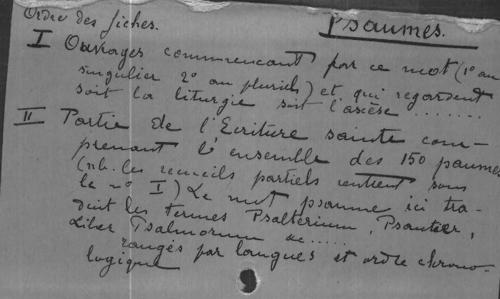 Ordre des fiches.
Psaumes.
I Ouvrages commençant par ce mot (1º au
singulier 2º au pluriel) et qui regardent
soit la liturgie soit l'ascèse ........
II Partie de l'Ecriture sainte com-
prenant l'ensemble des 150 psaumes
(nb. les recueils partiels rentrent sous
le nº I) Le mot psaume ici tra-
duit les termes Psalterium, Psautier,
Liber Psalmorum &c.....
rangés par langues et ordre chrono-
logique